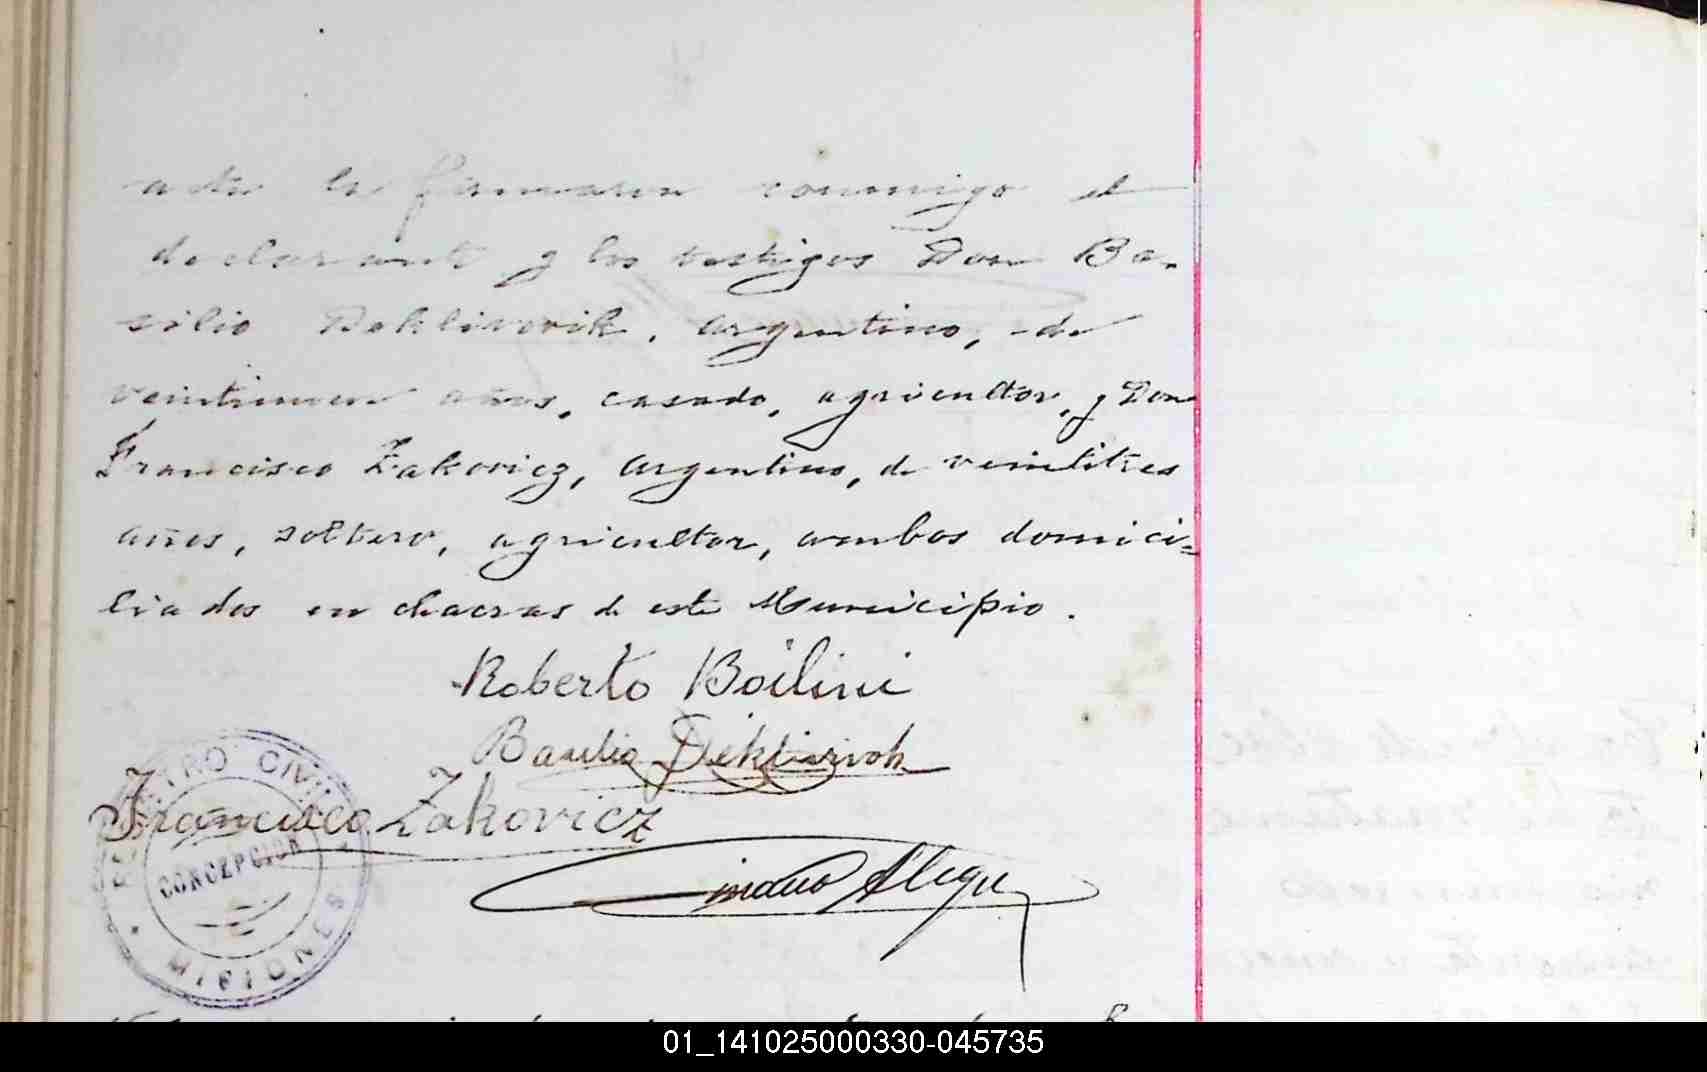 acta la firmaron conmigo el
declarante y los testigos Don Ba-
silio Deklivovik, argentino, de
años, casado, agricultor, y Don
Francisco Zakovicz, argentino, de veintitres
años, soltero, agricultor, ambos domici=
liados en chacras de este Municipio.
Roberto Boilini
Basilio
Francisco Zakovicz
Alegre
REGISTRO CIVIL
CONCEPCION
MISIONES
01_141025000330-045735